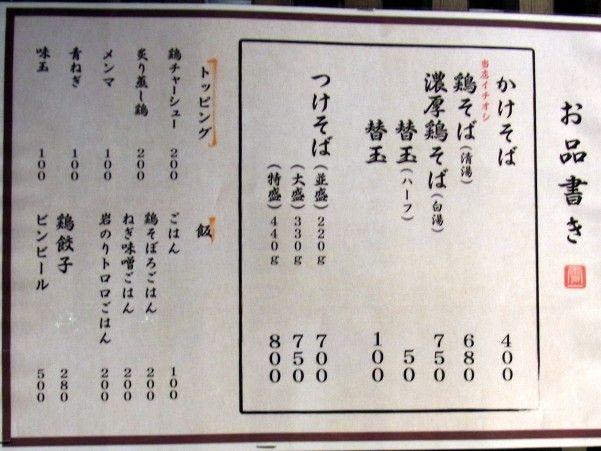 お品書き
かけそば 400
当店イチオシ
鶏そば(清湯) 680
濃厚鶏そば(白湯) 750
替玉(ハーフ) 50
替玉 100
つけそば(並盛)220g 700
(大盛)330g 750
(特盛)440g 800
トッピング
鶏チャーシュー 200
炙り蒸し鶏 200
メンマ 100
青ねぎ 100
味玉 100
飯
ごはん 100
鶏そぼろごはん 200
ねぎ味噌ごはん 200
岩のりトロロごはん 200
鶏餃子 280
ビンビール 500